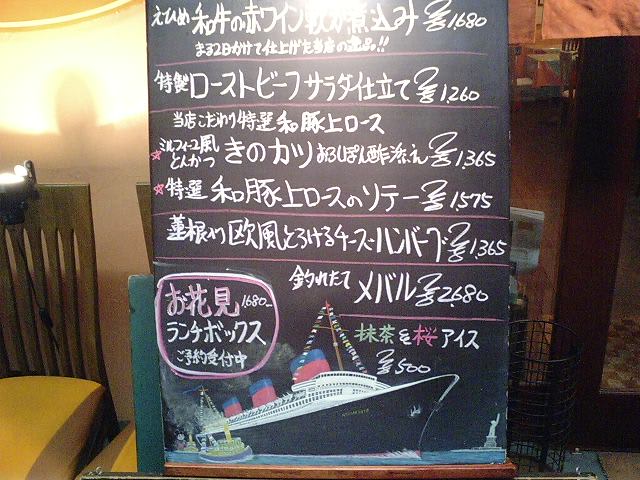 えひめ 和牛の赤ワイン軟か煮込み ¥1680
まる2日かけて仕上げた当店の逸品!!
特製 ローストビーフサラダ仕立て ¥1,260
当店こだわり特選和豚上ロース
☆ミルフィーユ風とんかつ きのカツ おろしぽん酢添え ¥1,365
☆特選 和豚上ロースのソテー ¥1,575
蓮根入り欧風とろけるチーズハンバーグ ¥1,365
釣れたて メバル ¥2,680
お花見 1680
ランチボックス
ご予約受付中
抹茶&桜アイス
¥500